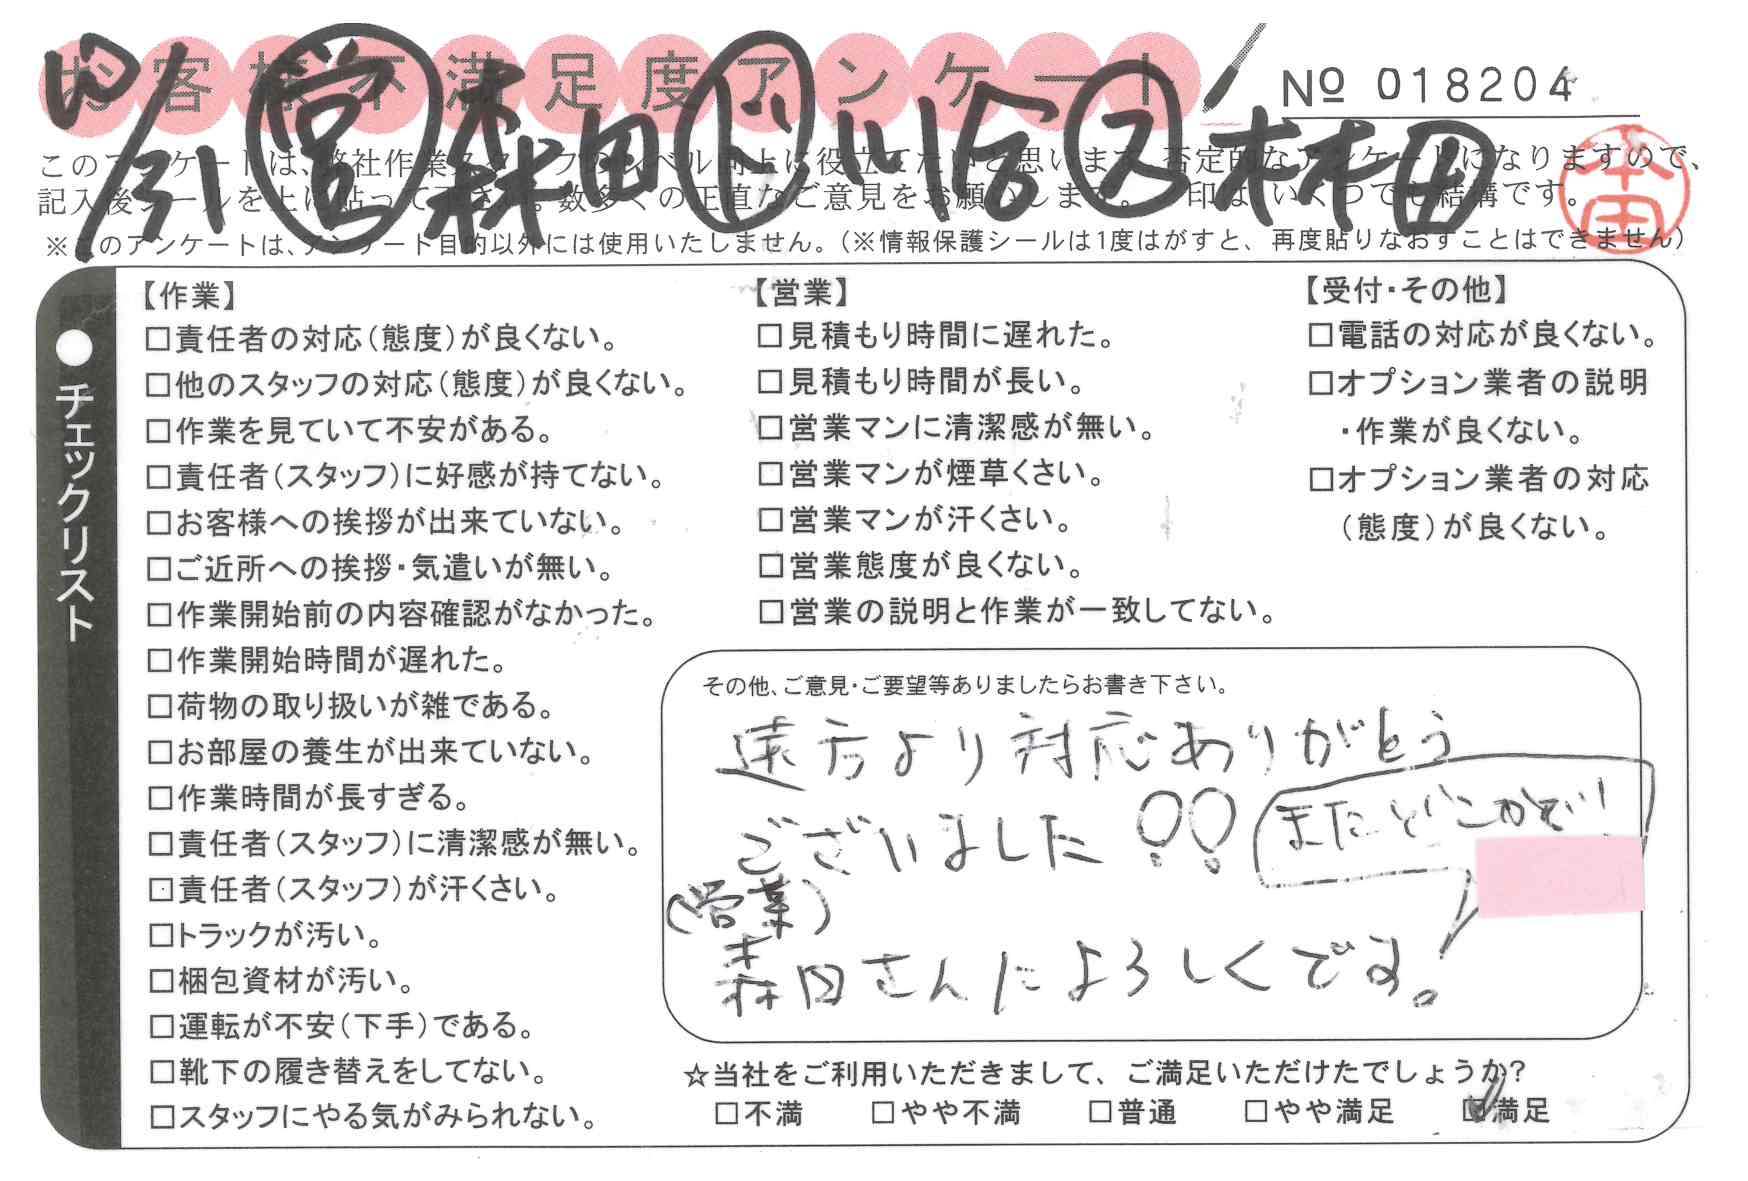 お客様不満足度アンケート
№ 018204
10/31 営 森田 ド 川合 ス 村田
本田
このアンケートは、弊社作業スタッフのレベル向上に役立てたいと思います。否定的なアンケートになりますので、
記入後シールを上に貼って下さい。数多くの正直なご意見をお願いします。✓印は、いくつでも結構です。
※このアンケートは、アンケート目的以外には使用いたしません。(※情報保護シールは1度はがすと、再度貼りなおすことはできません)
●チェックリスト
【作業】
□責任者の対応(態度)が良くない。
□他のスタッフの対応(態度)が良くない。
□作業を見ていて不安がある。
□責任者(スタッフ)に好感が持てない。
□お客様への挨拶が出来ていない。
□ご近所への挨拶・気遣いが無い。
□作業開始前の内容確認がなかった。
□作業開始時間が遅れた。
□荷物の取り扱いが雑である。
□お部屋の養生が出来ていない。
□作業時間が長すぎる。
□責任者(スタッフ)に清潔感が無い。
□責任者(スタッフ)が汗くさい。
□トラックが汚い。
□梱包資材が汚い。
□運転が不安(下手)である。
□靴下の履き替えをしてない。
□スタッフにやる気がみられない。
【営業】
□見積もり時間に遅れた。
□見積もり時間が長い。
□営業マンに清潔感が無い。
□営業マンが煙草くさい。
□営業マンが汗くさい。
□営業態度が良くない。
□営業の説明と作業が一致してない。
【受付・その他】
□電話の対応が良くない。
□オプション業者の説明
・作業が良くない。
□オプション業者の対応
(態度)が良くない。
その他、ご意見・ご要望等ありましたらお書き下さい。
遠方より対応ありがとう
ございました!!
またどこかで!
(営業)
森田さんによろしくです。
☆当社をご利用いただきまして、ご満足いただけたでしょうか?
□不満 □やや不満 □普通 □やや満足 ☑満足